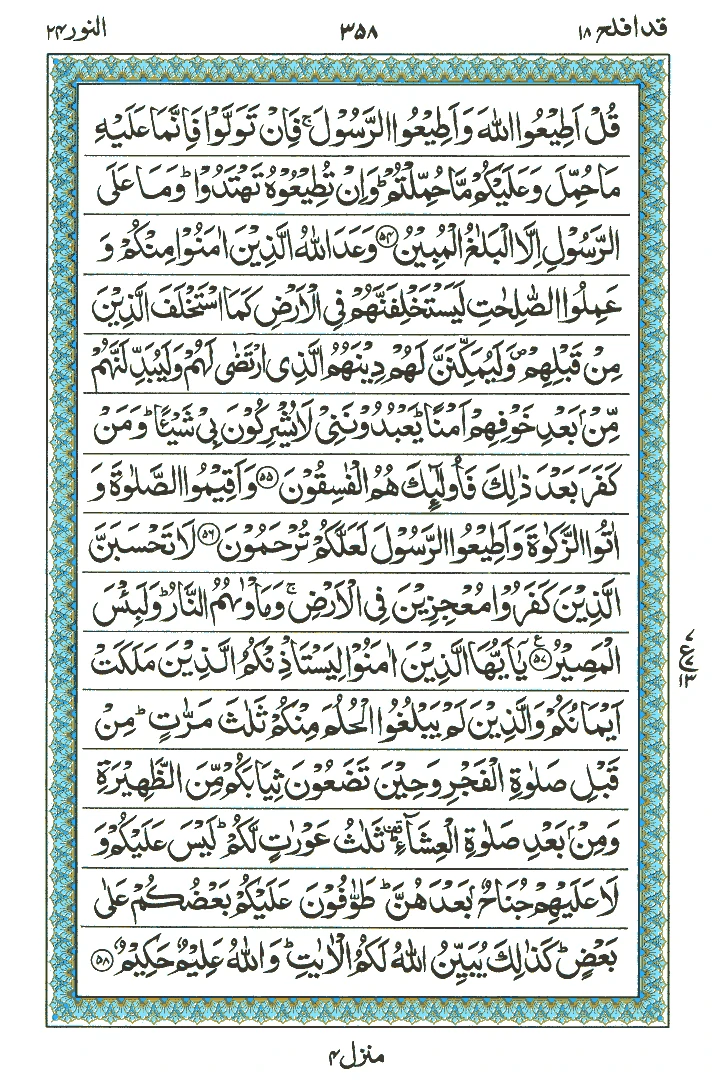 قد افلح ۱۸ ۳۵۸ النور ۲۴
قُلْ اَطِیْعُوا اللّٰهَ وَاَطِیْعُوا الرَّسُوْلَ ۚ فَاِنْ تَوَلَّوْا فَاِنَّمَا عَلَیْهِ
مَا حُمِّلَ وَعَلَیْكُمْ مَّا حُمِّلْتُمْ ؕ وَاِنْ تُطِیْعُوْهُ تَهْتَدُوْا ؕ وَمَا عَلَی
الرَّسُوْلِ اِلَّا الْبَلٰغُ الْمُبِیْنُ ۝۵۴ وَعَدَ اللّٰهُ الَّذِیْنَ اٰمَنُوْا مِنْكُمْ وَ
عَمِلُوا الصّٰلِحٰتِ لَیَسْتَخْلِفَنَّهُمْ فِی الْاَرْضِ كَمَا اسْتَخْلَفَ الَّذِیْنَ
مِنْ قَبْلِهِمْ ۪ وَلَیُمَكِّنَنَّ لَهُمْ دِیْنَهُمُ الَّذِی ارْتَضٰی لَهُمْ وَلَیُبَدِّلَنَّهُمْ
مِّنْۢ بَعْدِ خَوْفِهِمْ اَمْنًا ؕ یَعْبُدُوْنَنِیْ لَا یُشْرِكُوْنَ بِیْ شَیْـًٔا ؕ وَمَنْ
كَفَرَ بَعْدَ ذٰلِكَ فَاُولٰٓىِٕكَ هُمُ الْفٰسِقُوْنَ ۝۵۵ وَاَقِیْمُوا الصَّلٰوةَ وَ
اٰتُوا الزَّكٰوةَ وَاَطِیْعُوا الرَّسُوْلَ لَعَلَّكُمْ تُرْحَمُوْنَ ۝۵۶ لَا تَحْسَبَنَّ
الَّذِیْنَ كَفَرُوْا مُعْجِزِیْنَ فِی الْاَرْضِ ۚ وَمَاْوٰىهُمُ النَّارُ ؕ وَلَبِئْسَ
الْمَصِیْرُ ۝۵۷ یٰۤاَیُّهَا الَّذِیْنَ اٰمَنُوْا لِیَسْتَاْذِنْكُمُ الَّذِیْنَ مَلَكَتْ
اَیْمَانُكُمْ وَالَّذِیْنَ لَمْ یَبْلُغُوا الْحُلُمَ مِنْكُمْ ثَلٰثَ مَرّٰتٍ ؕ مِنْ
قَبْلِ صَلٰوةِ الْفَجْرِ وَحِیْنَ تَضَعُوْنَ ثِیَابَكُمْ مِّنَ الظَّهِیْرَةِ
وَمِنْۢ بَعْدِ صَلٰوةِ الْعِشَآءِ ۫ ثَلٰثُ عَوْرٰتٍ لَّكُمْ ؕ لَیْسَ عَلَیْكُمْ وَ
لَا عَلَیْهِمْ جُنَاحٌۢ بَعْدَهُنَّ ؕ طَوّٰفُوْنَ عَلَیْكُمْ بَعْضُكُمْ عَلٰی
بَعْضٍ ؕ كَذٰلِكَ یُبَیِّنُ اللّٰهُ لَكُمُ الْاٰیٰتِ ؕ وَاللّٰهُ عَلِیْمٌ حَكِیْمٌ ۝۵۸
۷
ع
۱۳
منزل ۴